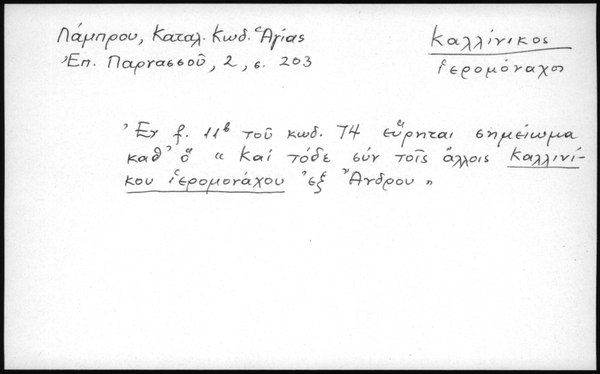 Λάμπρου, Καταλ. Κωδ. Ἁγίας
Ἐπ. Παρνασσοῦ, 2, σ. 203
Καλλίνικος
ἱερομόναχος
Ἐν f. 11β τοῦ κωδ. 74 εὕρηται σημείωμα
καθ' ὅ « Καί τόδε σύν τοῖς ἄλλοις Καλλινί-
κου ἱερομονάχου ἐξ Ἄνδρου »